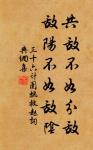 共敌不如分敌
敌阳不如敌阴
三十六计围魏救赵词
典网集